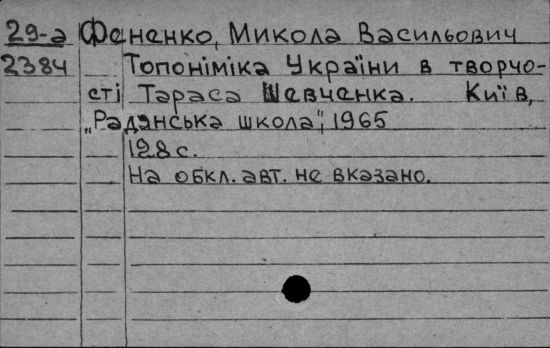 29-а Фененко, Микола Васильович
2384 Топоніміка України в творчо-
сті Тараса Шевченка. Київ,
„Радянська школа", 1965
128 с.
На обкл. авт. не вказано.